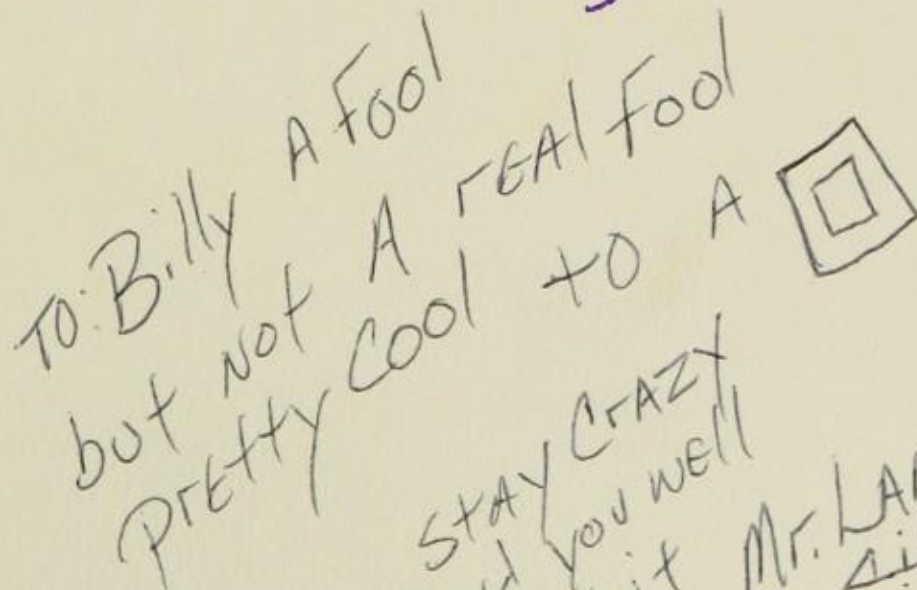 To: Billy A Fool
but not A rEAl Fool
prEtty Cool to A
StAY CrAZY
you wEll
it Mr.